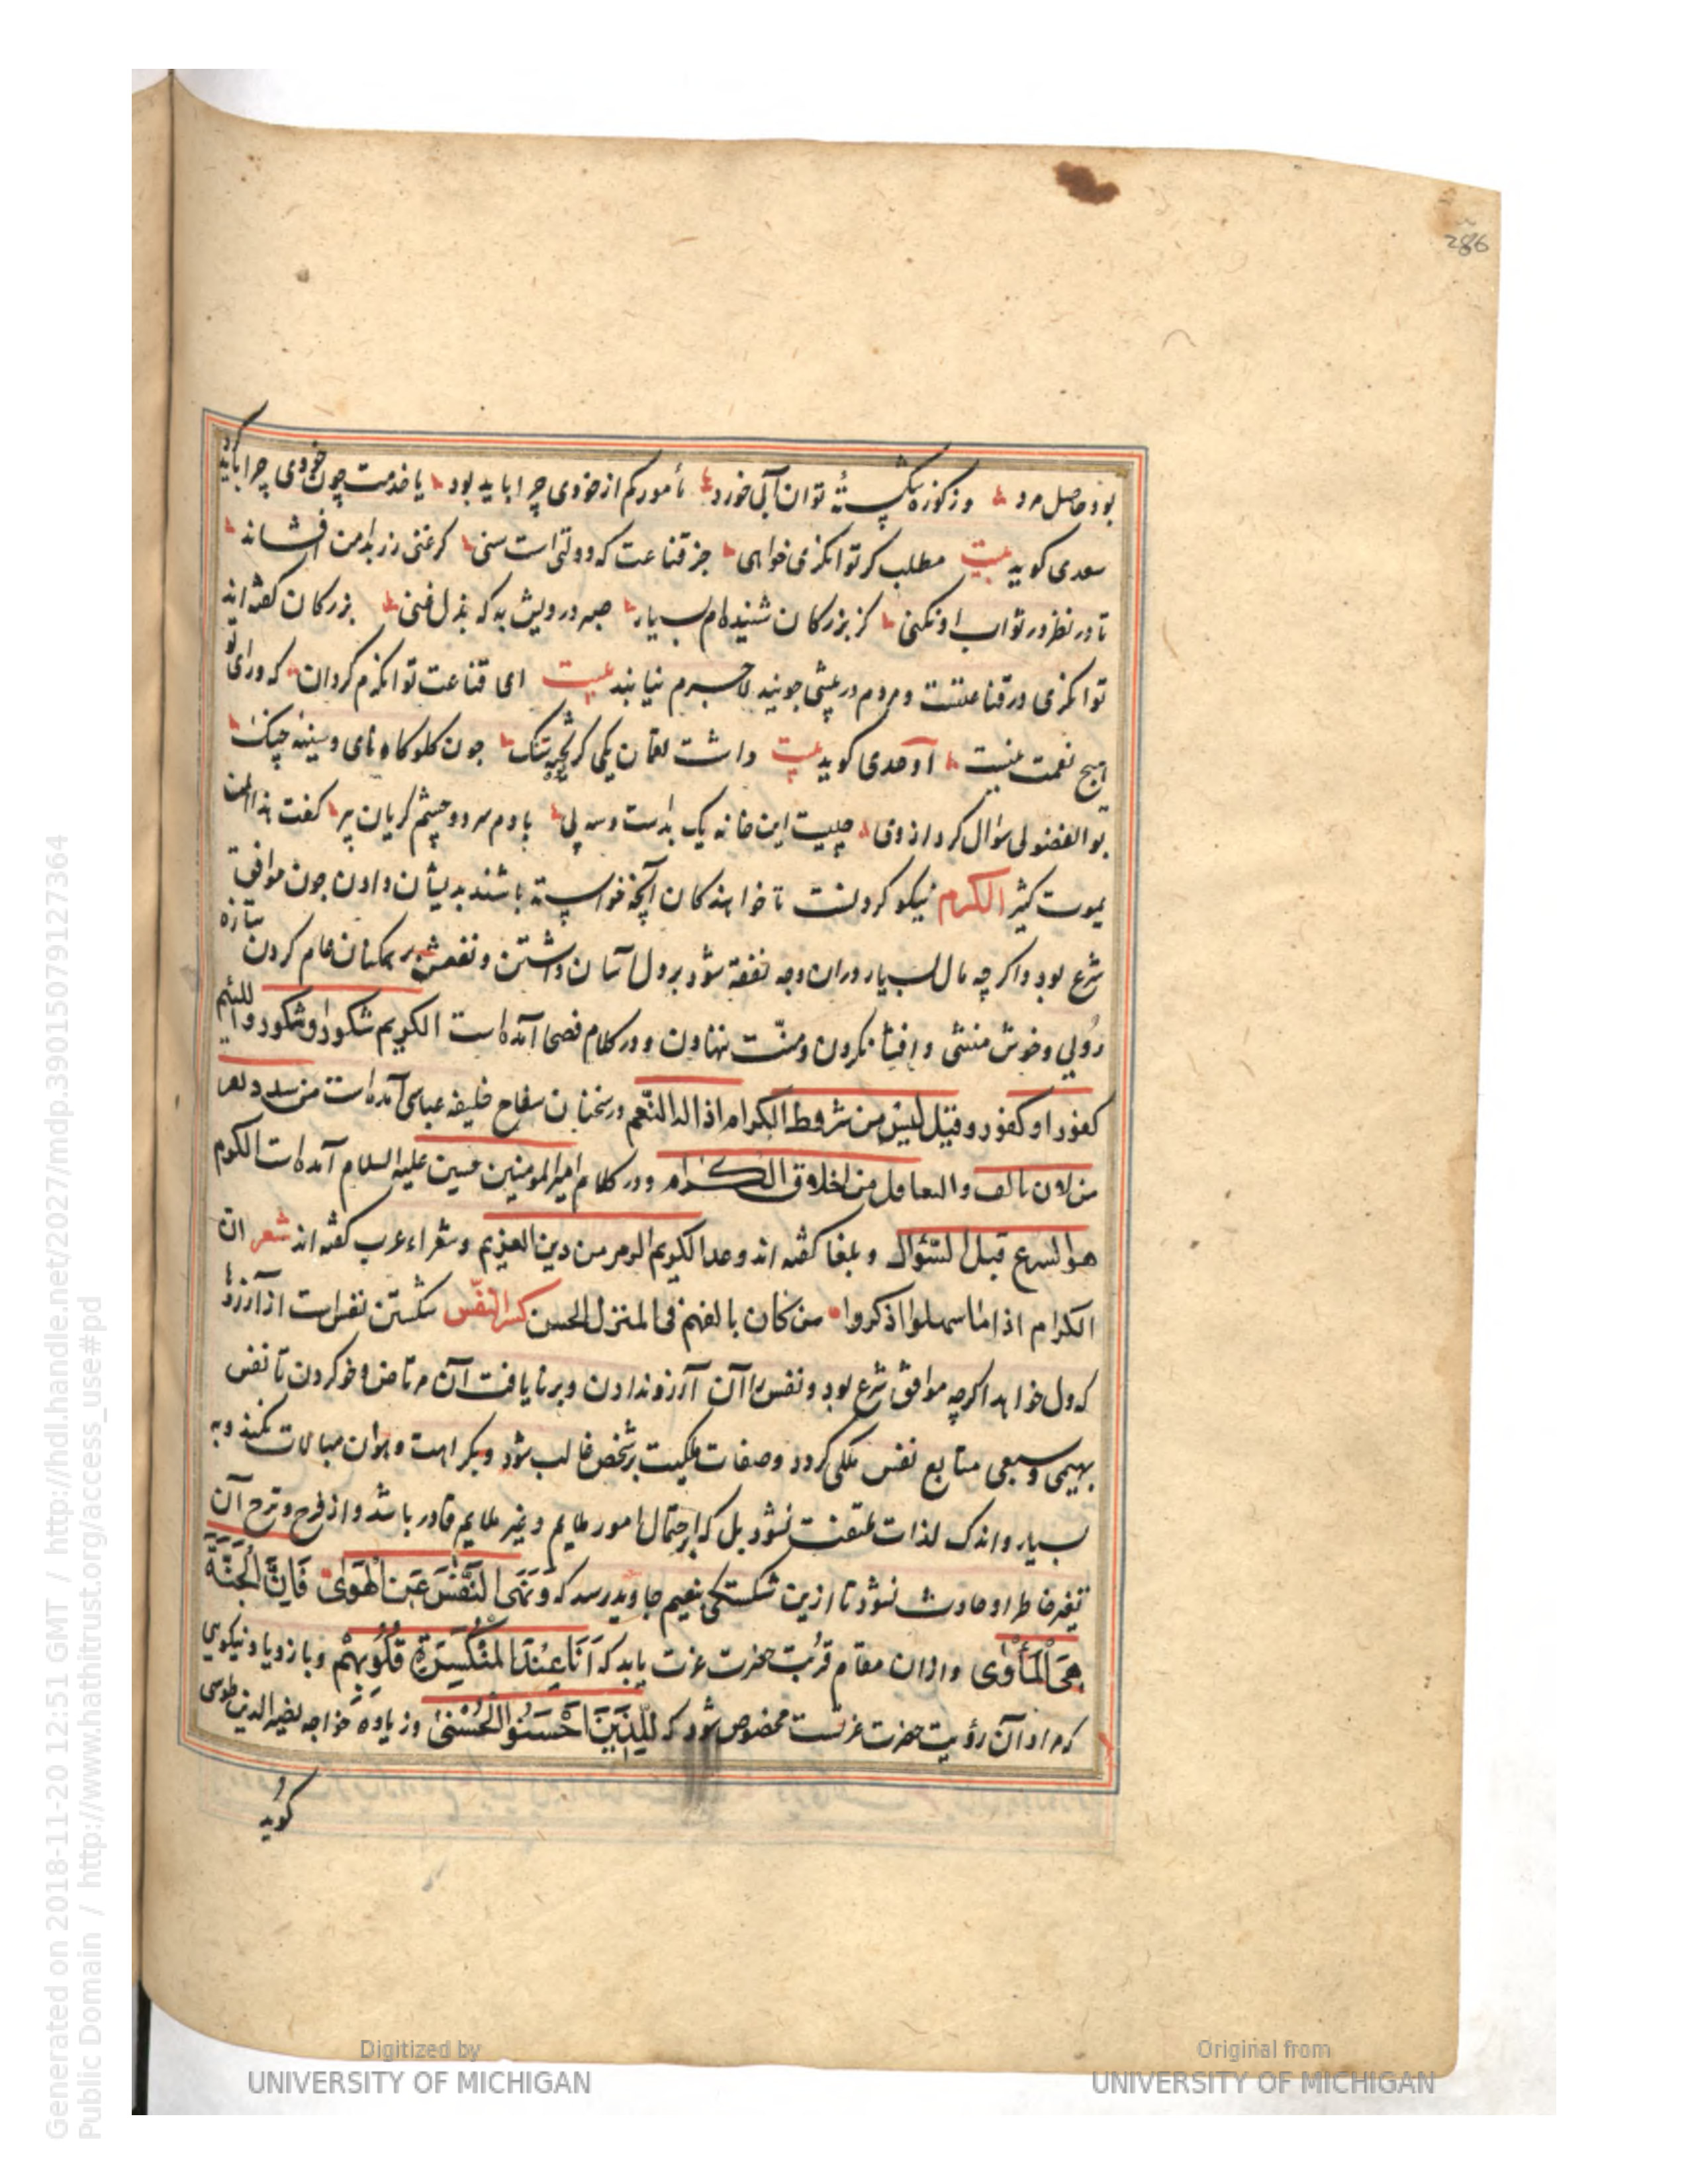 286
بود حاصل مرد وز کوزه شکسته توان آبی خورد مأمور کم از خودی چرا باید بود یا خدمت چون خودی چرا باید کرد
سعدی کوید بیت مطلب کر توانکری خواهی جز قناعت که دولتی است هنی کر غنی زر بدامن افشاند
تا در نظر در ثواب او نکنی کز بزرکان شنیده‌ام بسیار صبر درویش به که بذل غنی بزرکان کفته اند
توانکری در قناعتست و مردم در بیشی جویند لاجرم نیابند بیت ای قناعت توانکرم کردان که ورای تو
هیچ نعمت نیست اوحدی کوید بیت داشت لقمان یکی کریچه تنک چون کلوکاه نای و سینه چنک
بوالفضولی سؤال کرد از وی چیست این خانه یک بدست و سه پی با دم سرد و چشم کریان پیر کفت هذا لمن
یموت کثیر الکرم نیکو کردنست تا خواهندکان آنچه خواسته باشند بدیشان دادن چون موافق
شرع بود و اکر چه مال بسیار در ان وجه نفقه شود بر دل آسان داشتن و نفعش بر همکنان عام کردن تازه
روئی و خوش منشی و افشا نکردن و منّت ننهادن و در کلام فصحا آمده است الکریم شکور او مشکور واللئیم
کفور او مکفور و قیل لیس من شروط الکرام اذالة النّعم و در سخنان سفاح خلیفه عباسی آمده است من سدد نفر
من لان تالف والتغافل من اخلاق الکرام و در کلام امیر المومنین حسین علیه السلام آمده است الکرم
هو التبرع قبل السّؤال و بلغا کفته اند وعد الکریم الزم من دین الغریم و شعراء عرب کفته اند شعر ان
الکرام اذا ما سهلوا ذکروا من کان یالفهم فی المنزل الخشن کسر النفس شکستن نفس است از آرزوها
که دل خواهد اکرچه موافق شرع بود و نفس را آن آرزو ندادن و بر نایافت آن مرتاض و خو کردن تا نفس
بهیمی و سبعی متابع نفس ملکی کردد و صفات ملکیت بر شخص غالب شود و بکراهت و هوان مبالات نکند و به
بسیار و اندک لذات ملتفت نشود بل که بر احتمال امور ملایم و غیر ملایم قادر باشد و از فرح و ترح آن
تغیر خاطر او حادث نشود تا ازین شکستکی بنعیم جاوید رسد که وَنَهَى النَّفْسَ عَنِ الْهَوَىٰ فَاِنَّ الْجَنَّةَ
هِيَ الْمَأْوَىٰ و از ان مقام قربت حضرت عزت یابد که اَنَا عِنْدَ الْمُنْكَسِرَةِ قُلُوبُهُمْ و باز و یا و نیکویی
که مراد آن رؤیت حضرت عزتست مخصوص شود که لِلَّذِينَ اَحْسَنُوا الْحُسْنَىٰ وَ زِيَادَة خواجه نصیر الدین طوسی
کوید
Generated on 2018-11-20 12:51 GMT / http://hdl.handle.net/2027/mdp.39015079127364
Public Domain / http://www.hathitrust.org/access_use#pd
Digitized by
UNIVERSITY OF MICHIGAN
Original from
UNIVERSITY OF MICHIGAN